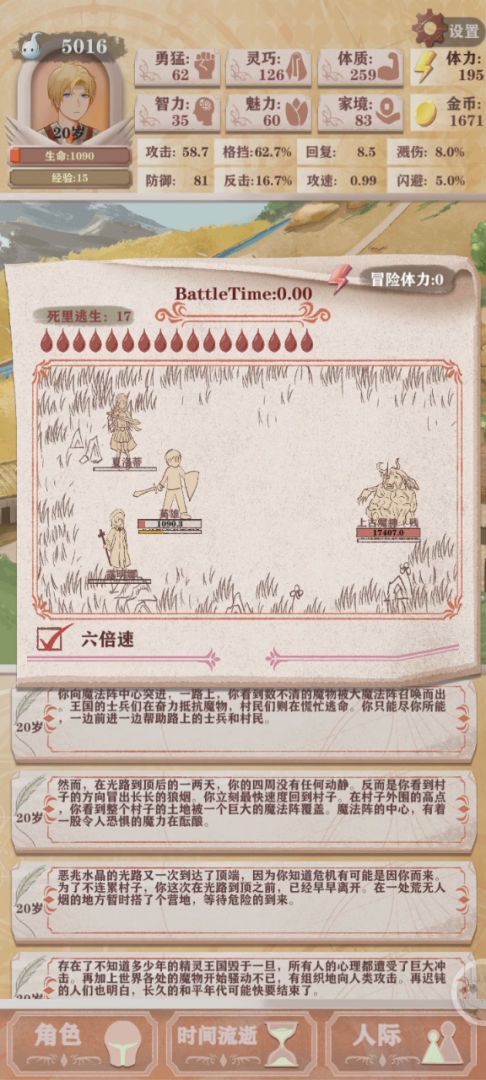 5016
设置
勇猛:
62
灵巧:
126
体质:
259
体力:
195
智力:
35
魅力:
60
家境:
83
金币:
1671
20岁
生命:1090
经验:15
攻击: 58.7
格挡:62.7%
回复: 8.5
溅伤: 8.0%
防御: 81
反击:16.7%
攻速: 0.99
闪避: 5.0%
冒险体力:0
BattleTime:0.00
死里逃生: 17
夏洛蒂
英雄
1090.3
17407.0
六倍速
你向魔法阵中心突进,一路上,你看到数不清的魔物被大魔法阵召唤而出
。王国的士兵们在奋力抵抗魔物,村民们则在慌忙逃命。你只能尽你所能
,一边前进一边帮助路上的士兵和村民。
20岁
然而,在光路到顶后的一两天,你的四周没有任何动静。反而是你看到村
子的方向冒出长长的狼烟。你立刻最快速度回到村子。在村子外围的高点
,你看到整个村子的土地被一个巨大的魔法阵覆盖。魔法阵的中心,有着
一股令人恐惧的魔力在酝酿。
20岁
恶兆水晶的光路又一次到达了顶端,因为你知道危机有可能是因你而来。
为了不连累村子,你这次在光路到顶之前,已经早早离开。在一处荒无人
烟的地方暂时搭了个营地,等待危险的到来。
20岁
存在了不知道多少年的精灵王国毁于一旦,所有人的心理都遭受了巨大冲
击。再加上世界各处的魔物开始骚动不已,有组织地向人类攻击。再迟钝
的人们也明白,长久的和平年代可能快要结束了。
20岁
角色
时间流逝
人际